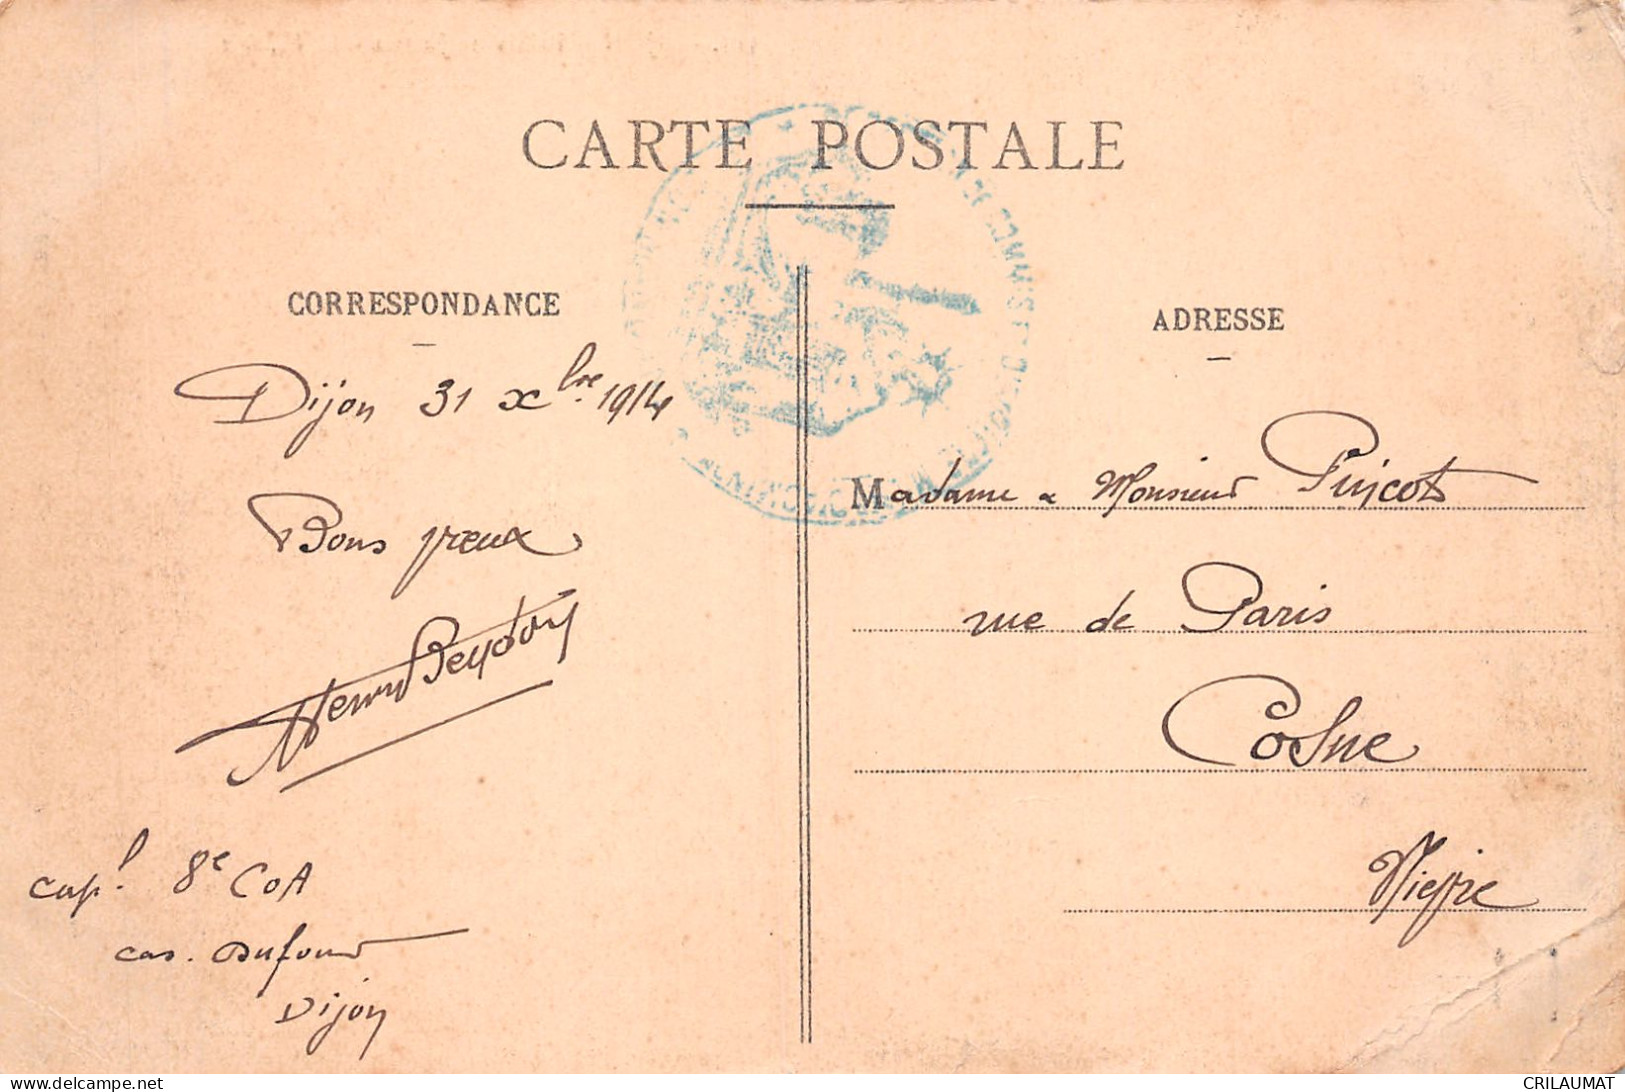 CARTE POSTALE
CORRESPONDANCE
Dijon 31 Xbre 1914
Bons vœux
Henry
capl. 8e COA
cas. Dufour
Dijon
ADRESSE
Madame & Monsieur
rue de Paris
Cosne
Nièvre
www.delcampe.net
CRILAUMAT